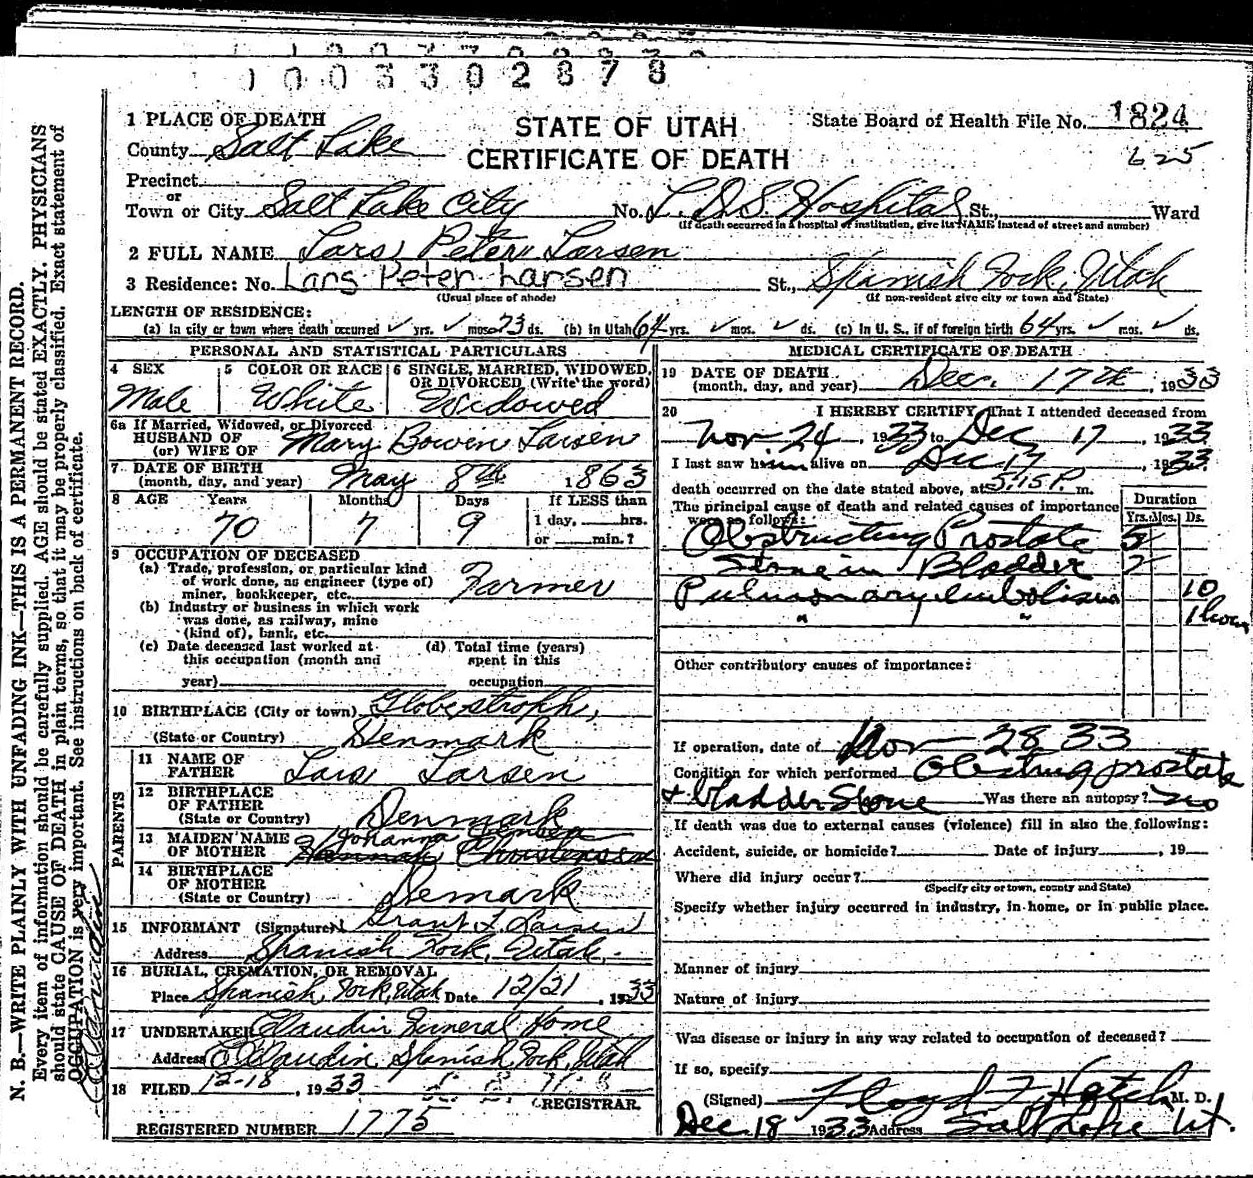 1003302878
1 PLACE OF DEATH
County Salt Lake
STATE OF UTAH
CERTIFICATE OF DEATH
State Board of Health File No. 1824
625
Precinct
or
Town or City Salt Lake City No. L.D.S. Hospital St., Ward
(If death occurred in a hospital or institution, give its NAME instead of street and number)
2 FULL NAME Lars Peter Larsen
3 Residence: No. Lars Peter Larsen St., Spanish Fork, Utah
(Usual place of abode) (If non-resident give city or town and State)
LENGTH OF RESIDENCE:
(a) In city or town where death occurred ✓ yrs. ✓ mos. 23 ds. (b) in Utah 64 yrs. ✓ mos. ✓ ds. (c) In U. S., if of foreign birth 64 yrs. ✓ mos. ✓ ds.
PERSONAL AND STATISTICAL PARTICULARS
4 SEX 5 COLOR OR RACE 6 SINGLE, MARRIED, WIDOWED,
OR DIVORCED (Write the word)
Male White Widowed
6a If Married, Widowed, or Divorced
HUSBAND OF
(or) WIFE OF Mary Bowen Larsen
7 DATE OF BIRTH
(month, day, and year) May 8th 1863
8 AGE Years Months Days If LESS than
70 7 9 1 day, hrs.
or min.?
9 OCCUPATION OF DECEASED
(a) Trade, profession, or particular kind
of work done, as engineer (type of)
miner, bookkeeper, etc. Farmer
(b) Industry or business in which work
was done, as railway, mine
(kind of), bank, etc.
(c) Date deceased last worked at (d) Total time (years)
this occupation (month and spent in this
year) occupation
10 BIRTHPLACE (City or town)
(State or Country) Denmark
PARENTS
11 NAME OF
FATHER Lars Larsen
12 BIRTHPLACE
OF FATHER
(State or Country) Denmark
13 MAIDEN NAME Johanna
OF MOTHER Hannah Christensen
14 BIRTHPLACE
OF MOTHER
(State or Country) Demark
15 INFORMANT (Signature) Grant L. Larsen
Address Spanish Fork, Utah.
16 BURIAL, CREMATION, OR REMOVAL
Place Spanish Fork, Utah Date 12/21, 1933
17 UNDERTAKER Claudin Funeral Home
Address Claudin Spanish Fork, Utah
18 FILED 12-18, 1933
REGISTRAR.
REGISTERED NUMBER 1775
MEDICAL CERTIFICATE OF DEATH
19 DATE OF DEATH
(month, day, and year) Dec. 17th, 1933
20 I HEREBY CERTIFY, That I attended deceased from
Nov. 24, 1933 to Dec 17, 1933
I last saw him alive on Dec 17, 1933
death occurred on the date stated above, at 5:15 P. m.
The principal cause of death and related causes of importance
were as follows:
Duration
Yrs. Mos. Ds.
Obstructing Prostate 5
Stone in Bladder 2
Pulmonary Embolism 10
" " 1 hour
Other contributory causes of importance:
If operation, date of Nov 28 33
Condition for which performed Obstructing prostate
& bladder Stone Was there an autopsy? no
If death was due to external causes (violence) fill in also the following:
Accident, suicide, or homicide? Date of injury, 19
Where did injury occur?
(Specify city or town, county and State)
Specify whether injury occurred in industry, in home, or in public place.
Manner of injury
Nature of injury
Was disease or injury in any way related to occupation of deceased?
If so, specify
(Signed) Floyd F Hatch M. D.
Dec 18 1933 Address Salt Lake Ut.
N. B.—WRITE PLAINLY WITH UNFADING INK—THIS IS A PERMANENT RECORD.
Every item of information should be carefully supplied. AGE should be stated EXACTLY. PHYSICIANS
should state CAUSE OF DEATH in plain terms, so that it may be properly classified. Exact statement of
OCCUPATION is very important. See instructions on back of certificate.